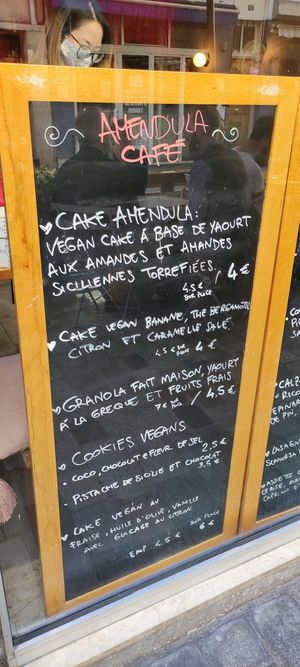 AMENDULA
CAFÉ
CAKE AMENDULA:
VEGAN CAKE À BASE DE YAOURT
AUX AMANDES ET AMANDES
SICILIENNES TORREFIÉES / 4 €
4,5 € SUR PLACE
CAKE VEGAN BANANE, THE BERGAMOTE
CITRON ET CARAMELLE SALÉ
4,5 € SUR PLACE 4 €
GRANOLA FAIT MAISON, YAOURT
À LA GREQUE ET FRUITS FRAIS
7 € SUR PLACE / 4,5 €
COOKIES VEGANS
COCO, CHOCOLAT E FLEUR DE SEL 2,5 €
PISTACHE DE SICILIE ET CHOCOLAT
3,5 €
CAKE VEGAN AU
FRAISE, HUILE D'OLIVE, VANILLE
AVEC GLACAGE AU CITRON
SUR PLACE
EMP. 4,5 € 6 €